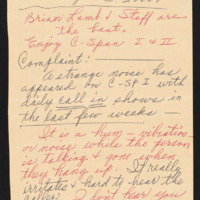 Brian Lamb & Staff are
the best.
Enjoy C-Span I & II
Complaint:
A strange noise has
appeared on C-SP I with
daily call in shows in
the last few weeks —
It is a hum – vibration –
or noise while the person
is talking & gone when
they hang up. It really
irritates & hard to hear the
caller! I don't hear you